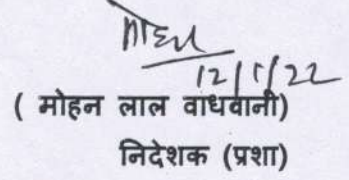 12/1/22
( मोहन लाल वाधवानी)
निदेशक (प्रशा)